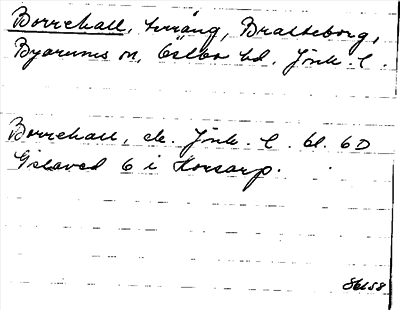 Borrekall, terräng, Bratteborg,
Byarums sn, Östbo hd. Jönk. l.
Borrekall, ek. Jönk. l. bl. 60
Gislaved 6 i Horsarp.
86158